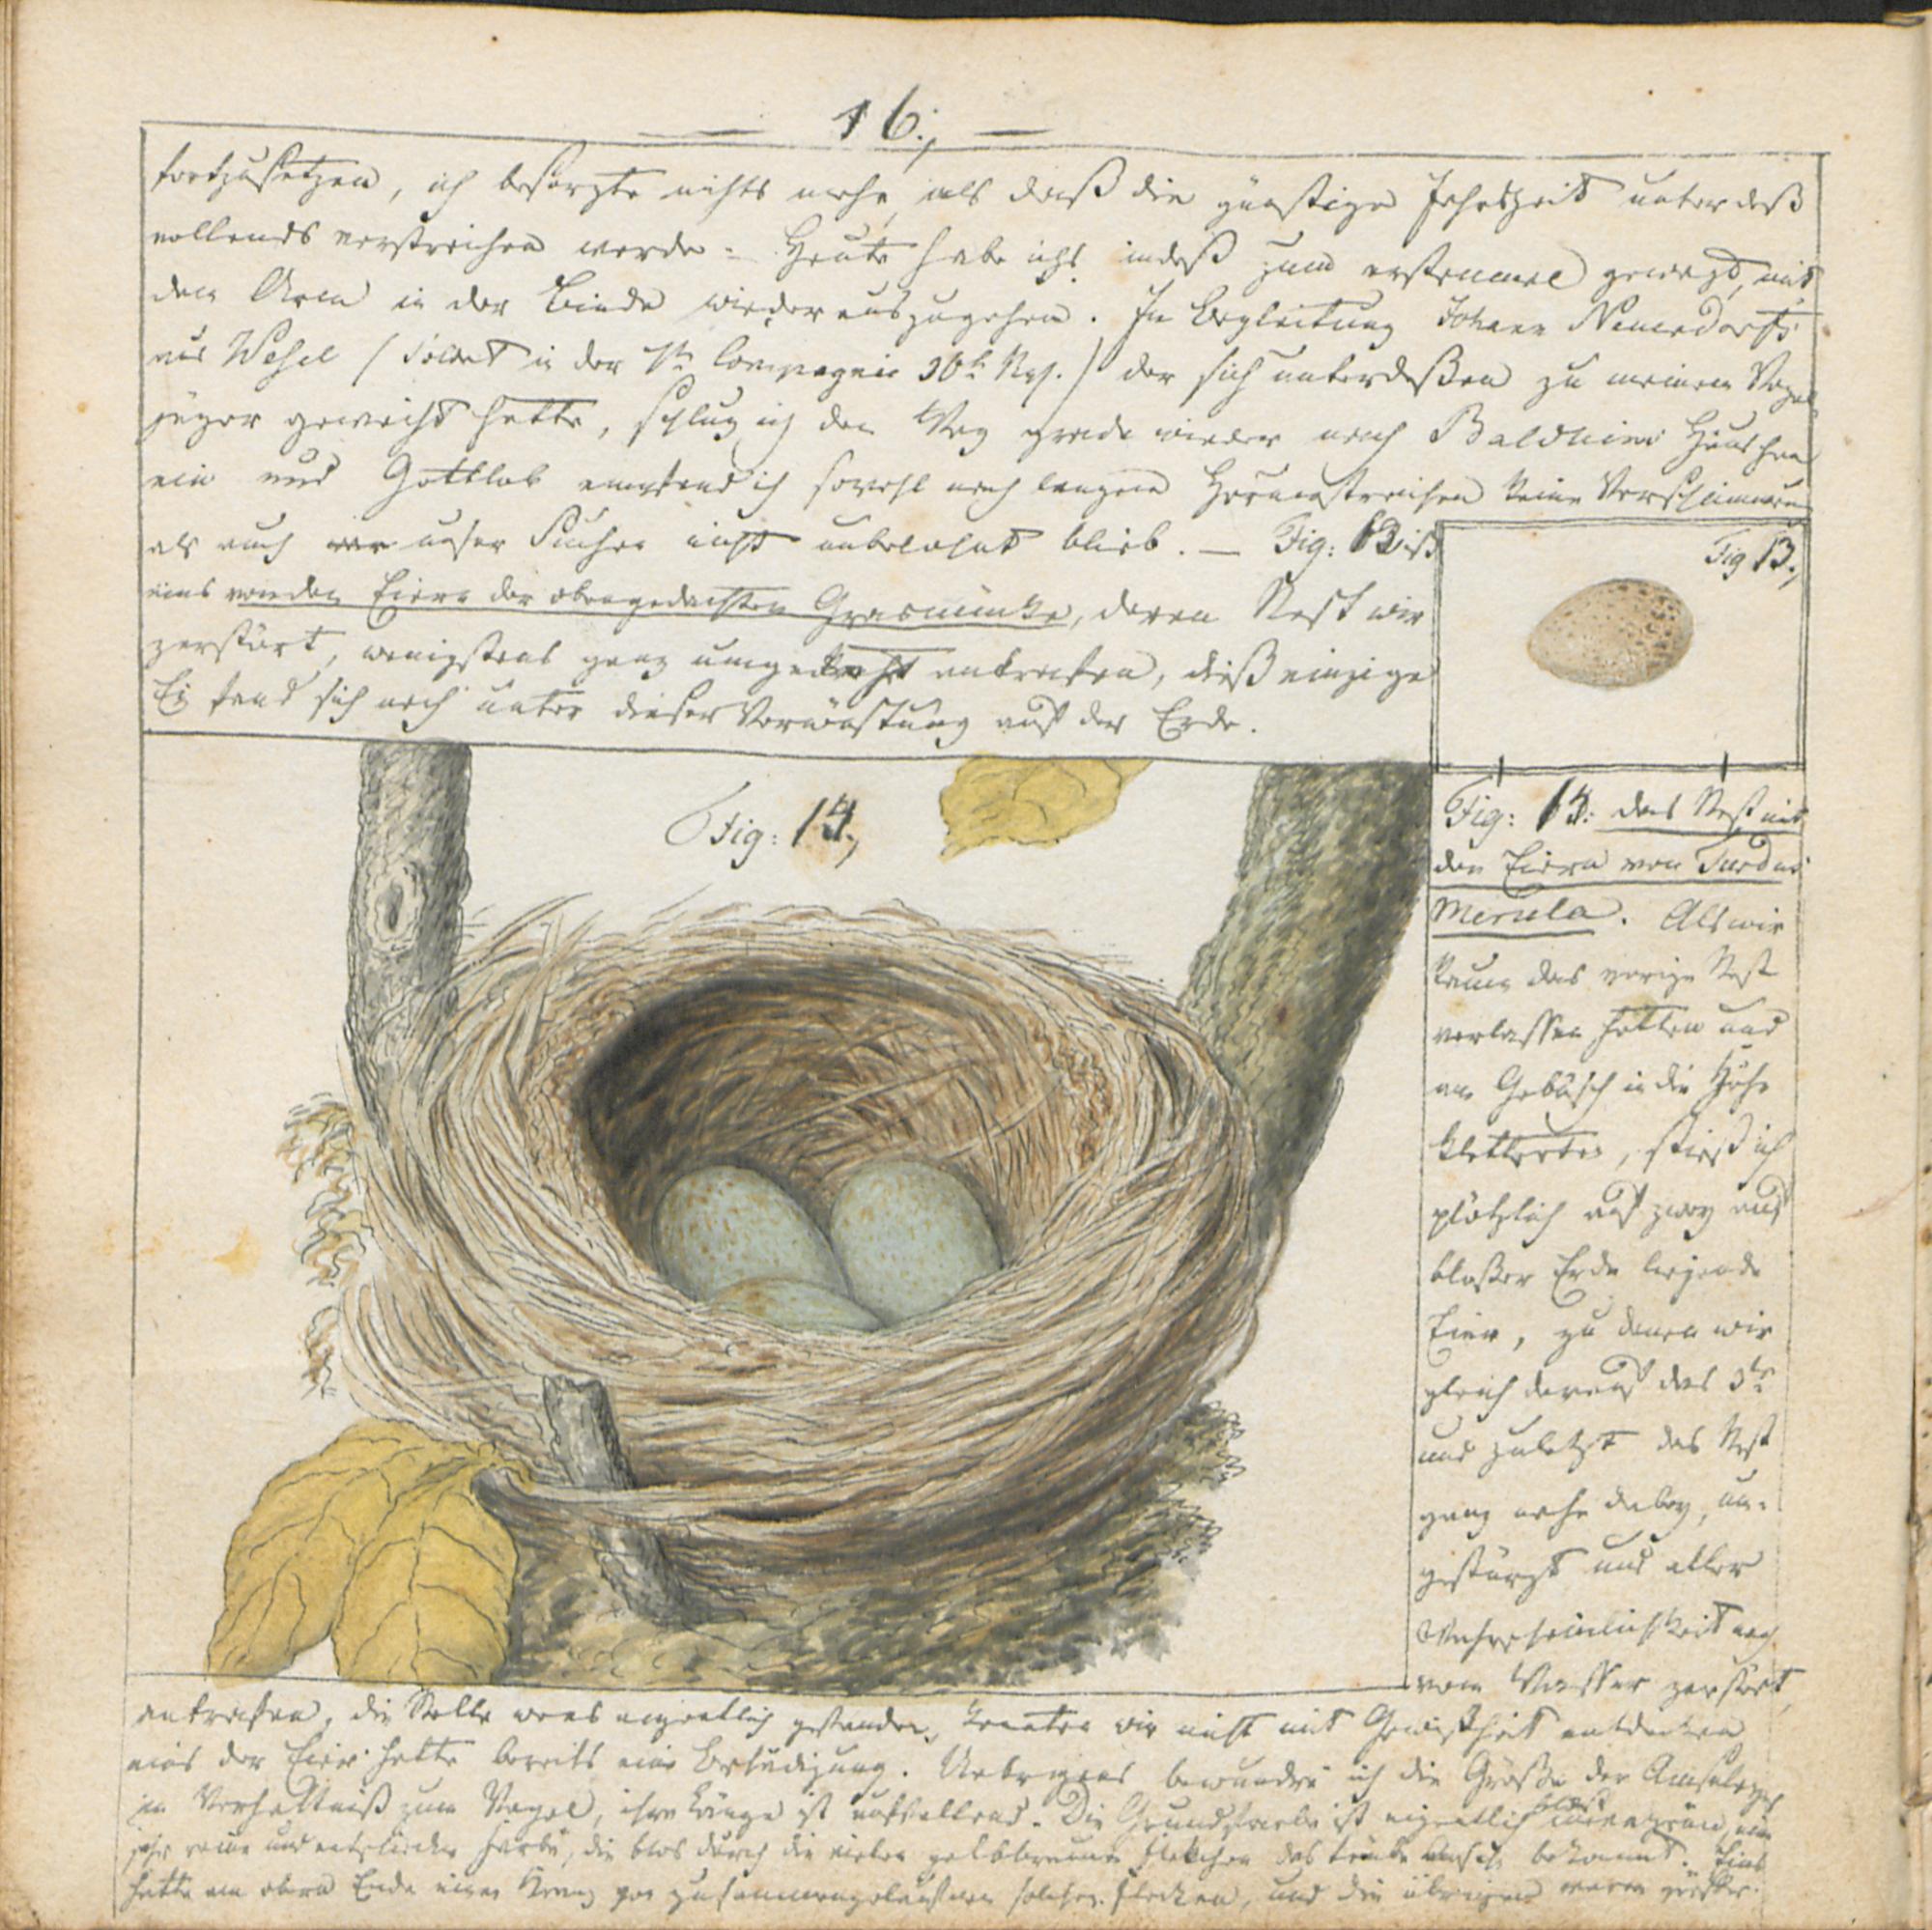 16.,
fortzusetzen, ich besorgte nichts mehr, als daß die günstige Jahrszeit unterdeß
vollends verstreichen werde. Heute habe ichs indeß zum erstenmal gewagt, mit
dem Arm in der Binde wieder auszugehen. In Begleitung Johann
aus Wesel (Soldat in der Compagnie Reg.) der sich unterdeßen zu meinem Vogel
jäger gemacht hatte, schlug ich den Weg grade wieder nach Balduins Häuschen
ein und Gottlob empfand ich sowohl nach langem keine
als auch unser Suchen nicht unbelohnt blieb. — Fig: 13 ist
eins von den Eiern der obengedachten Grasmücke, deren Nest wir
zerstört, wenigstens ganz umgekehrt antrafen, dieß einzige
Ei fand sich noch unter dieser Verwüstung auf der Erde.
Fig 13.,
Fig: 14.,
Fig: 14: das Nest mit
den Eiern von Turdus
Merula. Als wir
kaum das vorige Nest
verlassen hatten und
am Gebüsch in die Höhe
kletterten, stieß ich
plötzlich auf zwey auf
bloßer Erde liegende
Eier, zu denen wir
gleich darauf das 3te
und zuletzt das Nest
ganz nahe dabey, um-
gestürzt und aller
Wahrscheinlichkeit nach
vom Wasser zerstört,
antrafen, die Stelle wo es eigentlich gestanden, konnten wir nicht mit Gewißheit entdecken
eins der Eier hatte bereits eine Beschädigung. Uebrigens bewundre ich die Größe der
im Verhältniß zum Vogel, ihre Länge ist auffallend. Die Grundfarbe ist eigentlich
sehr reine und Farbe, die blos durch die vielen gelbbraunen Fleckchen das Ansehn bekommt. Eins
hatte am obern Ende einen Kranz von zusammengelaufenen solchen Flecken, und die übrigen waren größer.